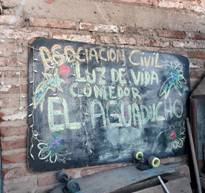 ASOCIACION CIVIL
LUZ DE VIDA
COMEDOR
EL AGUADUCHO